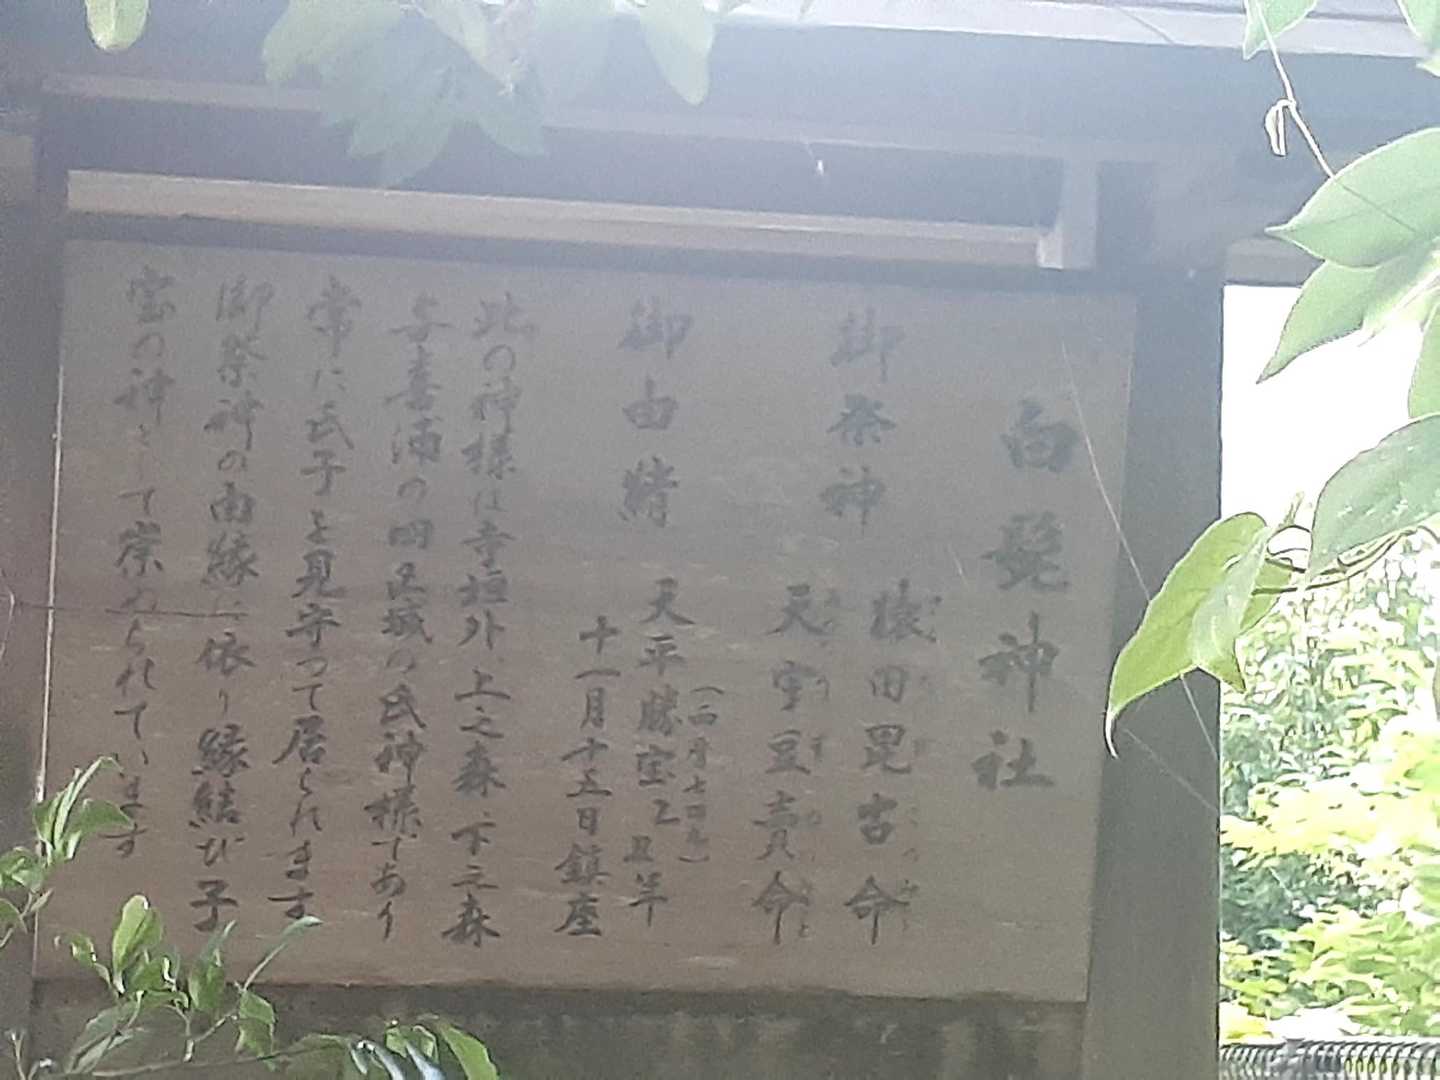 白髭神社
御祭神
猿田毘古命
天宇豆売命
御由緒
天平勝宝乙丑年
(西暦七四九)
十一月十五日鎮座
此の神様は寺垣外、上之森、下之森
与喜浦の四区域の氏神様であり
常に氏子を見守って居られます
御祭神の由縁に依り縁結び子
宝の神として崇められています